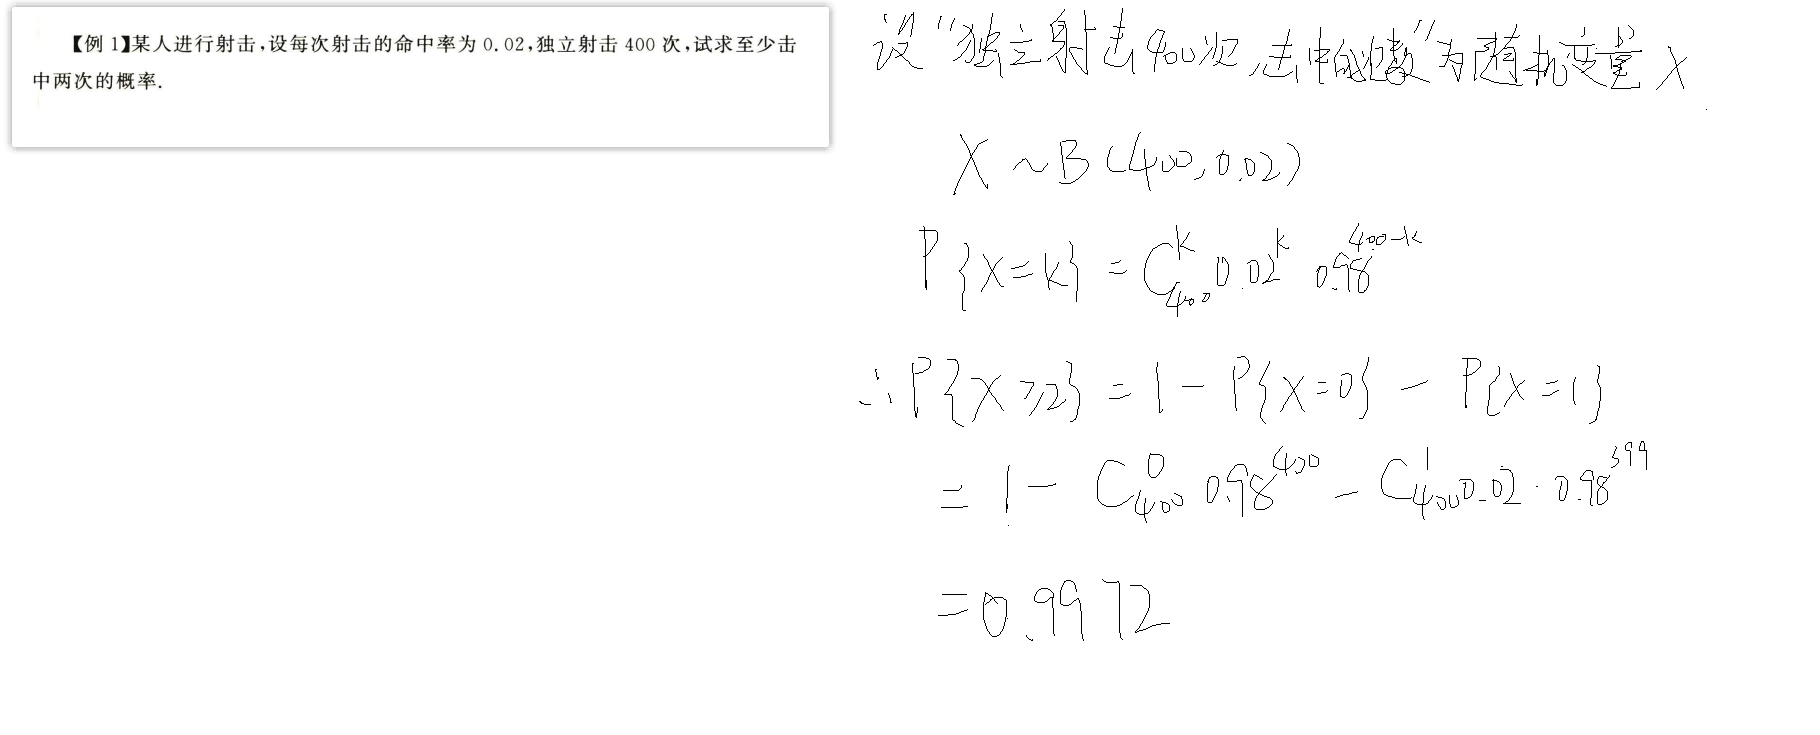 【例 1】某人进行射击,设每次射击的命中率为 0.02,独立射击 400 次,试求至少击
中两次的概率.
设“独立射击400次,击中的次数”为随机变量 X
X ~ B (400, 0.02)
P {X = k} = C₄₀₀ᵏ 0.02ᵏ 0.98⁴⁰⁰⁻ᵏ
∴ P{X ≥ 2} = 1 - P{X = 0} - P{X = 1}
= 1 - C₄₀₀⁰ 0.98⁴⁰⁰ - C₄₀₀¹ 0.02 · 0.98³⁹⁹
= 0.9972